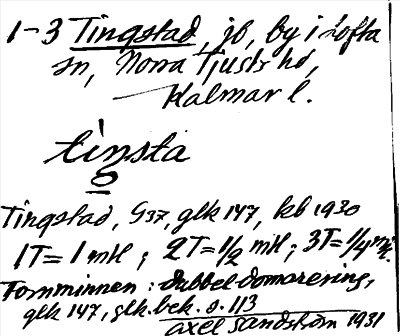 1-3 Tingstad, jb, by i Lofta
sn, Norra Tjusts hd,
Kalmar l.
tìngsta
Tingstad, G37, glk 147, kb 1930
1T = 1 mtl ; 2T = 1/2 mtl ; 3T = 1/4 mtl.
Fornminnen : dubbel domarering,
glk 147, glk. bek. s. 113
Axel Sandström 1931